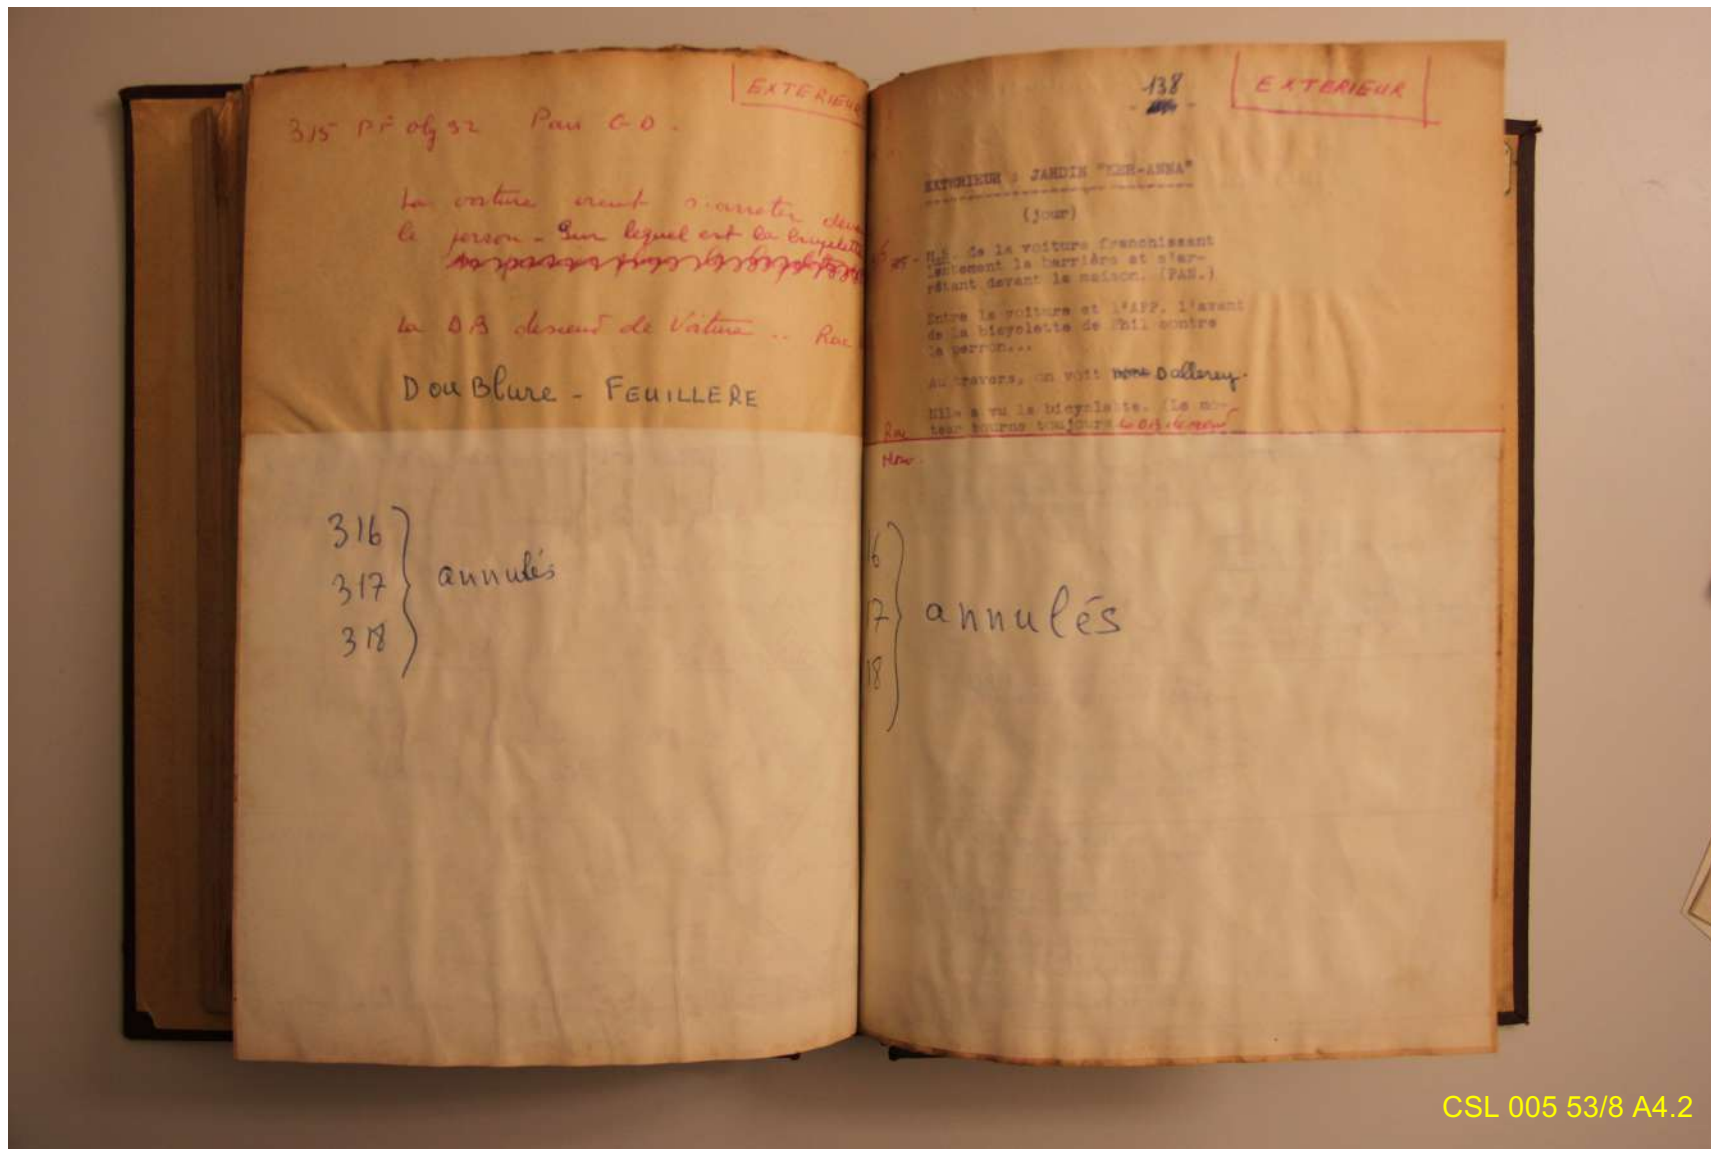 EXTERIEUR
315 PF obj 32 Pan G D.
La voiture vient s'arreter
le perron - Sur lequel est la bicyclette
La DB descend de Voiture .. Rac
DouBlure - FEUILLERE
316
317
318
annulés
138
EXTERIEUR
EXTERIEUR : JARDIN "KER-ANNA"
(jour)
de la voiture franchissant
lentement la barrière et s'ar-
rêtant devant la maison. (PAN.)
Entre la voiture et l'APP. l'avant
de la bicyclette de Phil contre
le perron...
Au travers, on voit Dalleray.
Elle a vu la bicyclette. (Le mo-
teur tourne toujours
Rac
16
17
18
annulés
CSL 005 53/8 A4.2